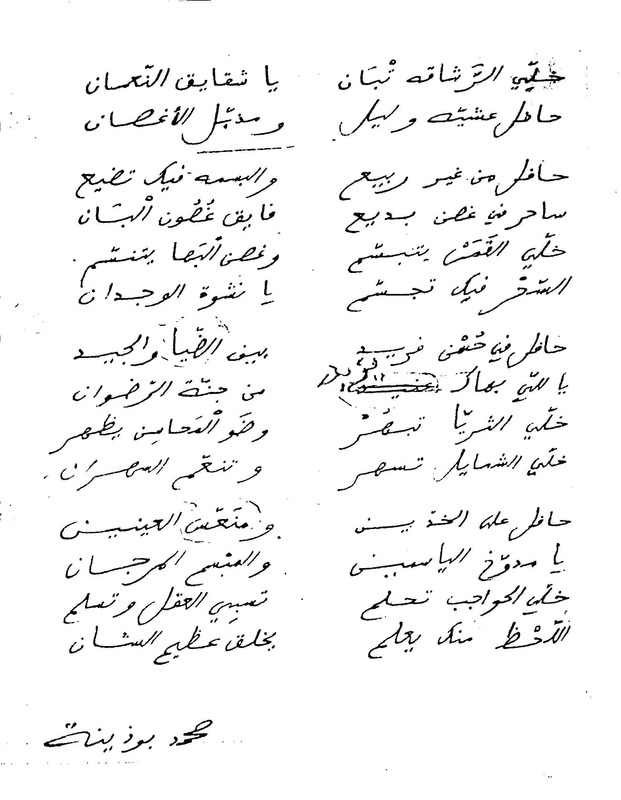 خلّي الرّشاقه تْبَان يا شقايق النّعمان
حافل عشيّه وليل ومذبّل الأغصان
حافل من غير ربيع والبسمه فيك تضيع
ساحر في غصن بديع فايق غُصُون الْبَان
خلّي القَمَرْ يتبسّم وغصن الْبَها يتنسّم
السّحْر فيك تجسّم يا نشوة الوجدان
حافل في حُسْن فريد بيف الضّيا والجيد
يا للّي بهاك من جنّة الرّضوان
خلّي الثريّا تبهَرْ وضَوْ الْمَحاسِن يظهر
خلّي الشمايل تسهر وتنعّم السهران
حافل على الخدّين ومنَعّس العينين
يا مدوّخ الياسمين والمبسم المرجان
خلّي الحواجب تحلم تسبِي العقل وتسلم
اللّحْظ منك يعلم بخلق عظيم الشان
محمد بوذينة